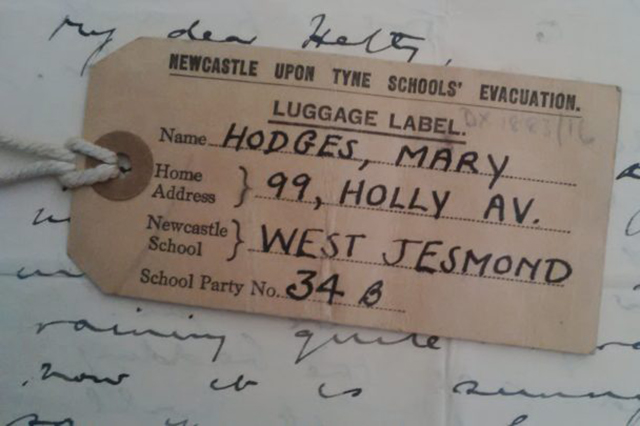 My dear Hetty,
NEWCASTLE UPON TYNE SCHOOLS' EVACUATION.
LUGGAGE LABEL.
Name HODGES, MARY
Home Address } 99, HOLLY AV.
Newcastle School } WEST JESMOND
School Party No. 34 B
raining quite
now it is